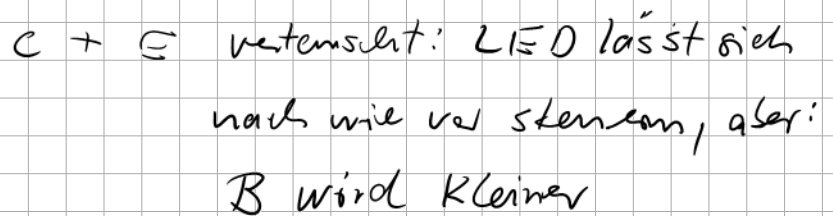 C + E vertauscht: LED lässt sich
nach wie vor steuern, aber:
B wird kleiner